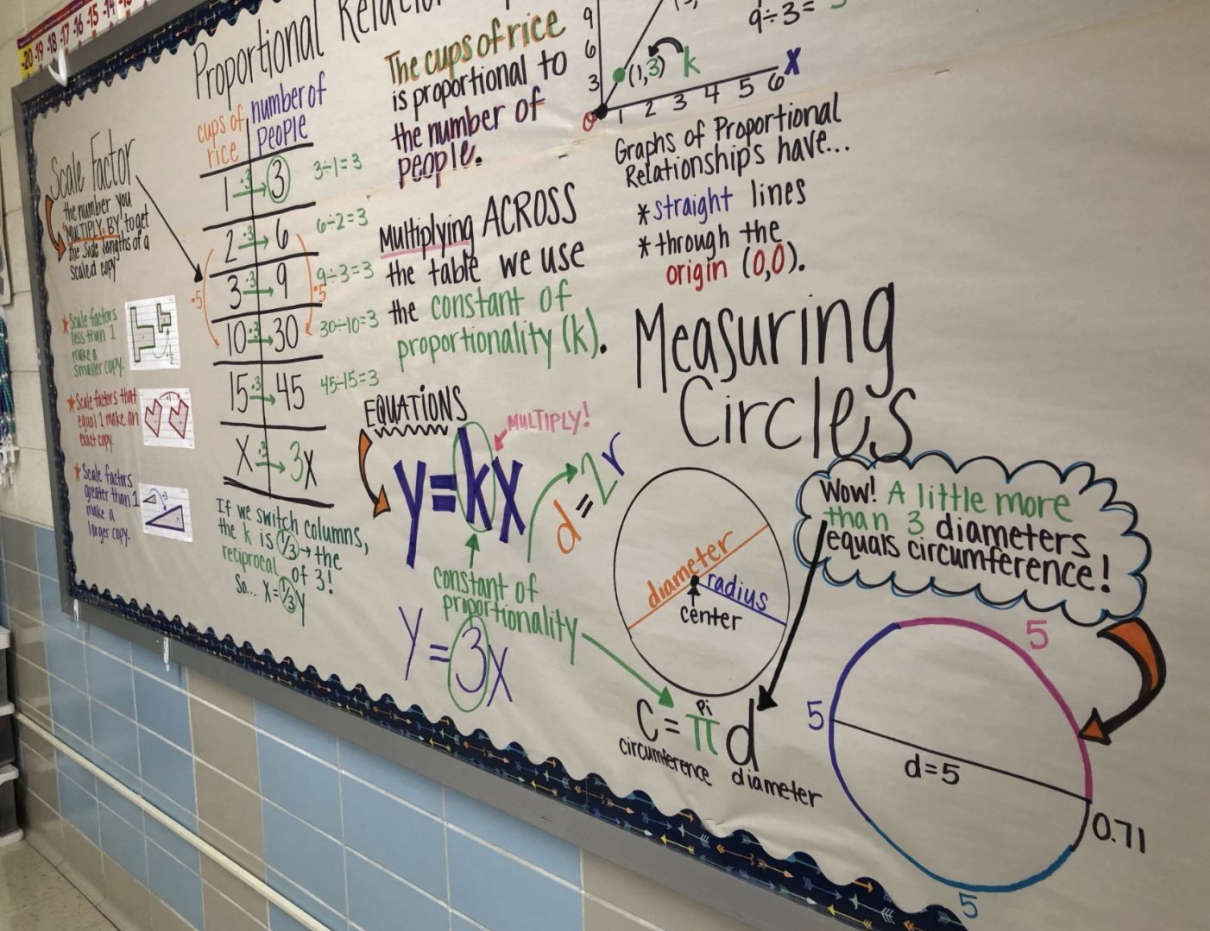 -20 -19 -18 -17 -16 -15 -14
Proportional
Scale Factor
the number you
MULTIPLY BY to get
the side lengths of a
scaled copy
* Scale factors
less than 1
make a
smaller copy.
* Scale factors that
equal 1 make an
exact copy.
* Scale factors
greater than 1
make a
larger copy.
cups of
rice
number of
people
1 ·3 3 3÷1=3
2 ·3 6 6÷2=3
3 ·3 9 9÷3=3
10 ·3 30 30÷10=3
15 ·3 45 45÷15=3
X ·3 3X
·5
·5
If we switch columns,
the k is 1/3 → the
reciprocal of 3!
So... X=1/3Y
The cups of rice
is proportional to
the number of
people.
Multiplying ACROSS
the table we use
the constant of
proportionality (k).
EQUATIONS
MULTIPLY!
y=kx
constant of
proportionality
Y=3X
d=2r
9
6
3
0
1 2 3 4 5 6 X
(1,3) k
9÷3=
Graphs of Proportional
Relationships have...
*straight lines
*through the
origin (0,0).
Measuring
Circles
diameter
radius
center
Pi
C=πd
circumference diameter
Wow! A little more
than 3 diameters
equals circumference!
5
5
d=5
0.71
5